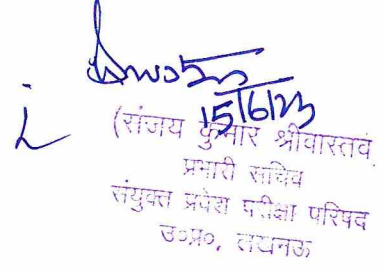 15/6/23
(संजय कुमार श्रीवास्तव
प्रभारी सचिव
संयुक्त प्रवेश परीक्षा परिषद
उ०प्र०, लखनऊ